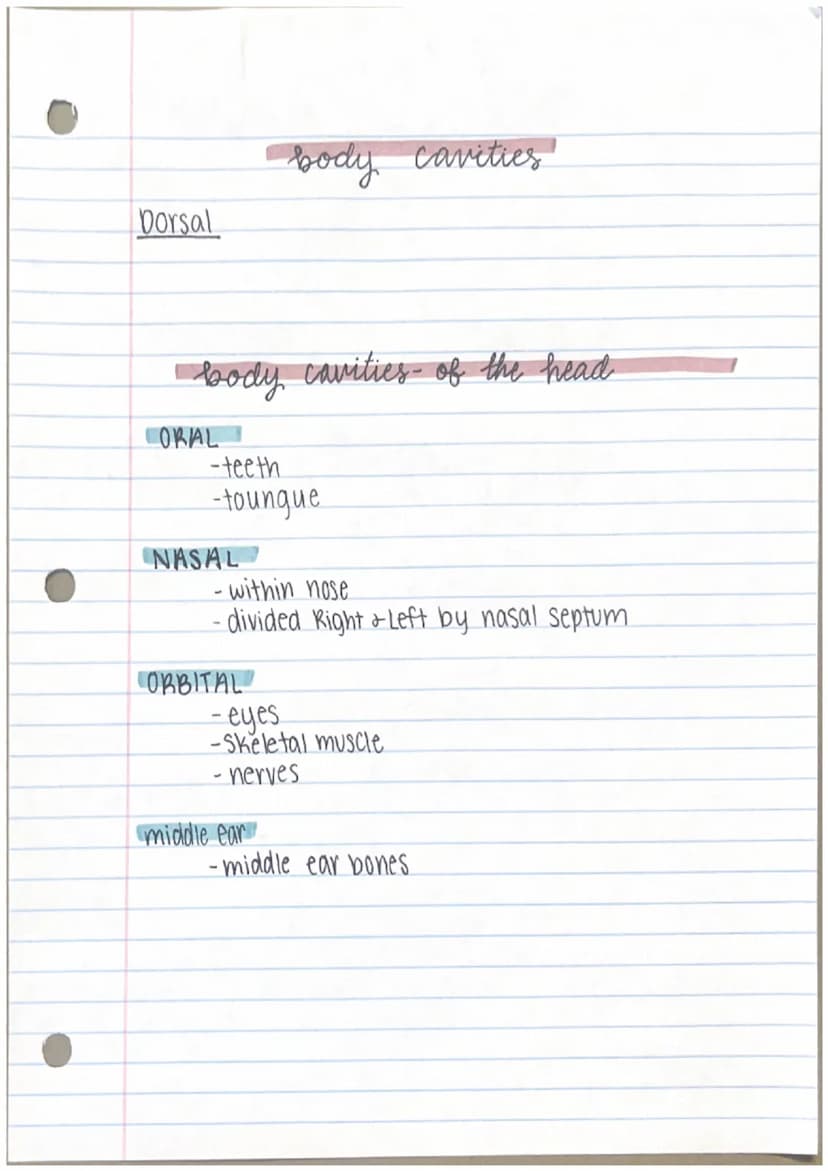 body cavities
Dorsal
body cavities- of the head
ORAL
-teeth
-toungue
NASAL
- within nose
- divided Right & Left by nasal septum
ORBITAL
- eyes
-Skeletal muscle
- nerves
middle ear
- middle ear bones